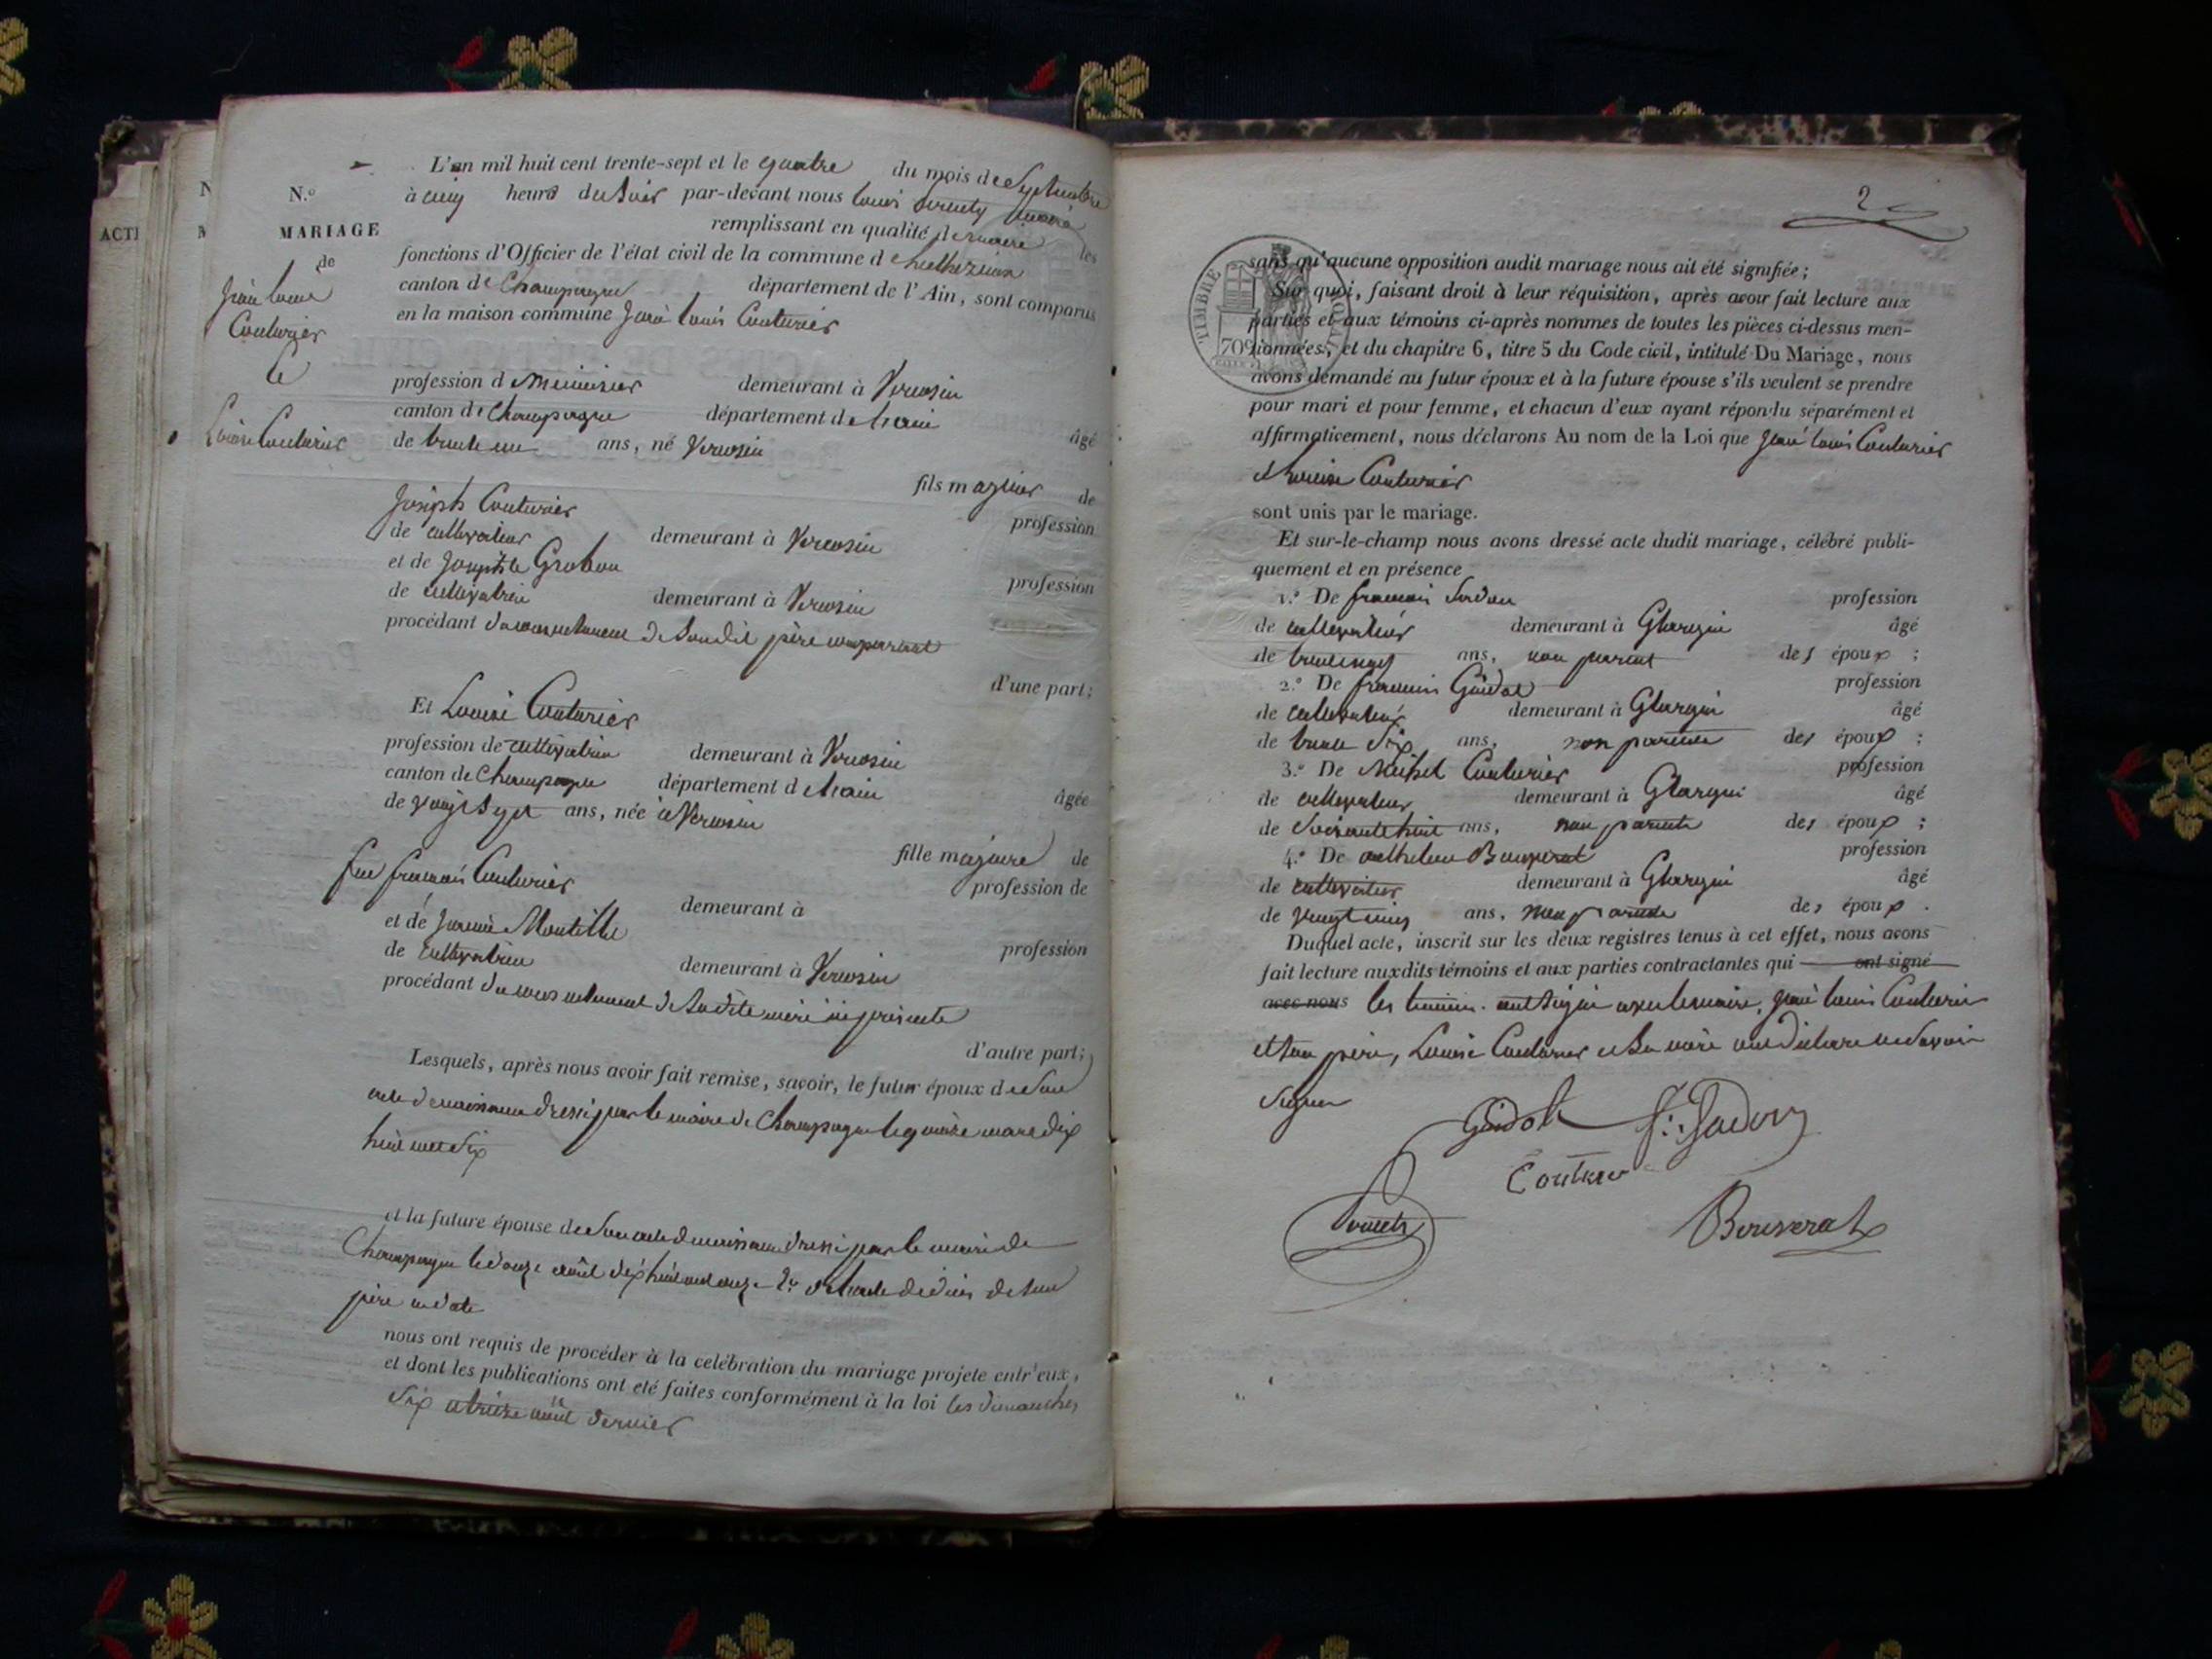 L'an mil huit cent trente-sept et le quatre du mois de Septembre
à cinq heures du soir par-devant nous Louis maire
remplissant en qualité de maire les
fonctions d'Officier de l'état civil de la commune d
canton de Champagne département de l'Ain, sont comparus
en la maison commune Jean Louis Couturier
N.°
MARIAGE
de
Jean Louis
Couturier
et
Louise Couturier
ACTE
profession de menuisier demeurant à Vercosin
canton de Champagne département de l'ain
âgé
de trente un ans, né Vercosin
fils majeur de
Joseph Couturier
profession
de cultivateur demeurant à Vercosin
et de Josephte Grobon
profession
de cultivatrice demeurant à Vercosin
procédant du consentement de son dit père comparant
d'une part;
Et Louise Couturier
profession de cultivatrice demeurant à Vercosin
canton de Champagne département de l'ain
âgée
de vingt sept ans, née à Vercosin
fille majeure de
feu françois Couturier
profession de
demeurant à
et de Montillet
profession
de cultivatrice demeurant à Vercosin
procédant du consentement de sa dite mère ici présente
d'autre part;
Lesquels, après nous avoir fait remise, savoir, le futur époux de son
acte de naissance dressé par le maire de Champagne le quinze mars dix
huit cent six
et la future épouse de son acte de naissance dressé par le maire de
Champagne le douze août dix huit cent onze 2.° de l'acte de décès de son
père en date
nous ont requis de procéder à la celébration du mariage projeté entr'eux,
et dont les publications ont été faites conformément à la loi les dimanches
six et treize août dernier
2
TIMBRE ROYAL
70c
sans qu'aucune opposition audit mariage nous ait été signifiée;
Sur quoi, faisant droit à leur réquisition, après avoir fait lecture aux
parties et aux témoins ci-après nommés de toutes les pièces ci-dessus men-
tionnées, et du chapitre 6, titre 5 du Code civil, intitulé Du Mariage, nous
avons demandé au futur époux et à la future épouse s'ils veulent se prendre
pour mari et pour femme, et chacun d'eux ayant répondu séparément et
affirmativement, nous déclarons Au nom de la Loi que Jean Louis Couturier
et Louise Couturier
sont unis par le mariage.
Et sur-le-champ nous avons dressé acte dudit mariage, célébré publi-
quement et en présence
1.° De françois profession
de cultivateur demeurant à Glargin âgé
de trente neuf ans, non parent des époux ;
2.° De françois Guidot profession
de cultivateur demeurant à Glargin âgé
de trente six ans, non parent des époux ;
3.° De Michel Couturier profession
de cultivateur demeurant à Glargin âgé
de soixante huit ans, non parent des époux ;
4.° De anthelme Bouverat profession
de cultivateur demeurant à Glargin âgé
de vingt cinq ans, non parent des époux .
Duquel acte, inscrit sur les deux registres tenus à cet effet, nous avons
fait lecture auxdits témoins et aux parties contractantes qui ont signé
avec nous les témoins ont signé avec le maire, Jean Louis Couturier
et son père, Louise Couturier et sa mère ont déclaré ne savoir
signer
Guidot
Couturier
Bouverat